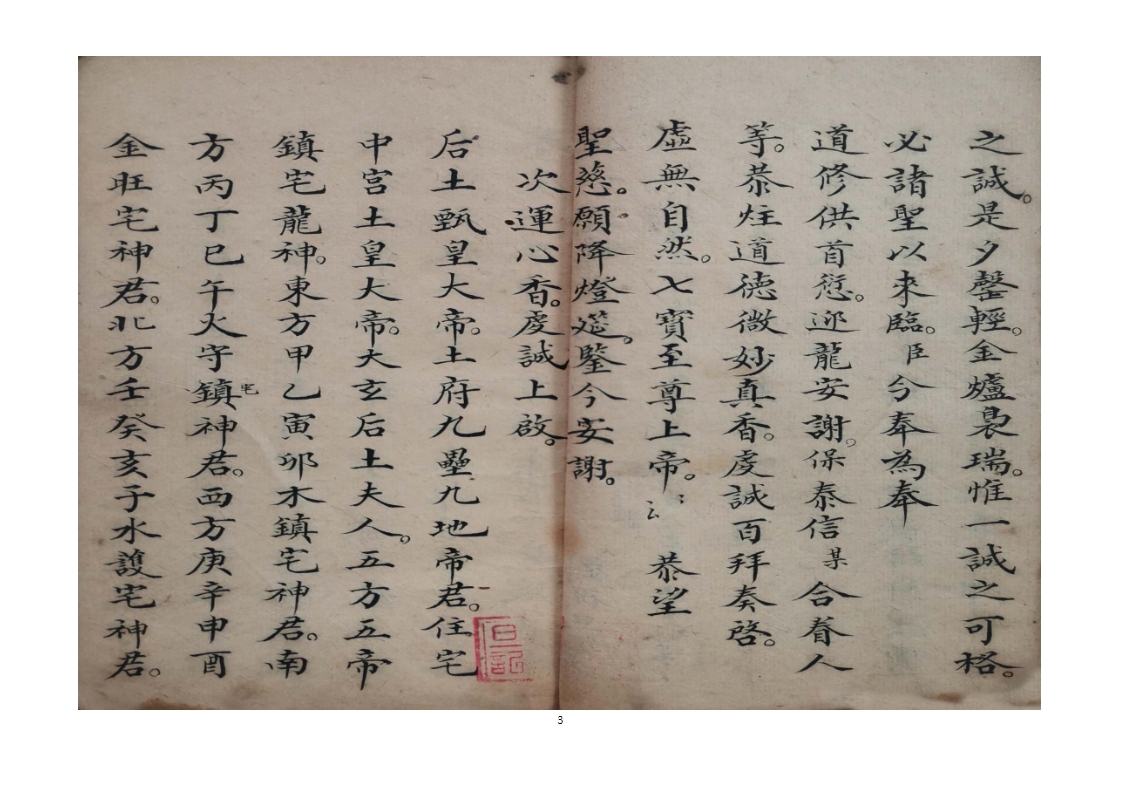 之誠。是夕罄輕。金爐裊瑞。惟一誠之可格。
必諸聖以來臨。臣兮奉為奉
道修供首愆。迎龍安謝。保泰信某合眷人
等。恭炷道德微妙真香。虔誠百拜奏啓。
虛無自然。七寶至尊上帝。 恭望
聖慈。願降燈筵。鑒今安謝。
次運心香。虔誠上啟。
后土甄皇大帝。土府九壘九地帝君。住宅
中宮土皇大帝。大玄后土夫人。五方五帝
鎮宅龍神。東方甲乙寅卯木鎮宅神君。南
方丙丁巳午火守鎮宅神君。西方庚辛申酉
金旺宅神君。北方壬癸亥子水護宅神君。
3